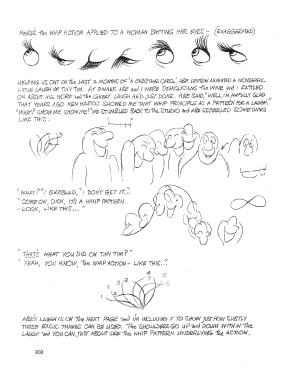 HERE'S THE WHIP ACTION APPLIED TO A WOMAN BATTING HER EYES - (EXAGGERATED)
HELPING US OUT ON THE LAST 2 MONTHS OF 'A CHRISTMAS CAROL', ABE LEVITOW ANIMATED A WONDERFUL
LITTLE LAUGH ON TINY TIM. AT DINNER ABE and I WERE DEMOLISHING THE WINE and I RATTLED
ON ABOUT HIS WORK and THE GREAT LAUGH HE'D JUST DONE. ABE SAID, "WELL, I'M AWFULLY GLAD
THAT YEARS AGO KEN HARRIS SHOWED ME THAT WHIP PRINCIPLE AS A PATTERN FOR A LAUGH."
"WHAT? SHOW ME, SHOW ME!" WE STUMBLED BACK TO THE STUDIO and ABE SCRIBBLED SOMETHING
LIKE THIS:
"WHAT?" I GARBLED, "I DON'T GET IT..."
"COME ON, DICK, IT'S A WHIP PATTERN.
- LOOK, LIKE THIS..."
"THAT'S WHAT YOU DID ON TINY TIM?"
"YEAH, YOU KNOW, THE WHIP ACTION - LIKE THIS..."
ABE'S LAUGH IS ON THE NEXT PAGE and I'M INCLUDING IT TO SHOW JUST HOW SUBTLY
THESE BASIC THINGS CAN BE USED. THE SHOULDERS GO UP and DOWN WITHIN THE
LAUGH and YOU CAN JUST ABOUT SEE THE WHIP PATTERN UNDERLYING THE ACTION.
302